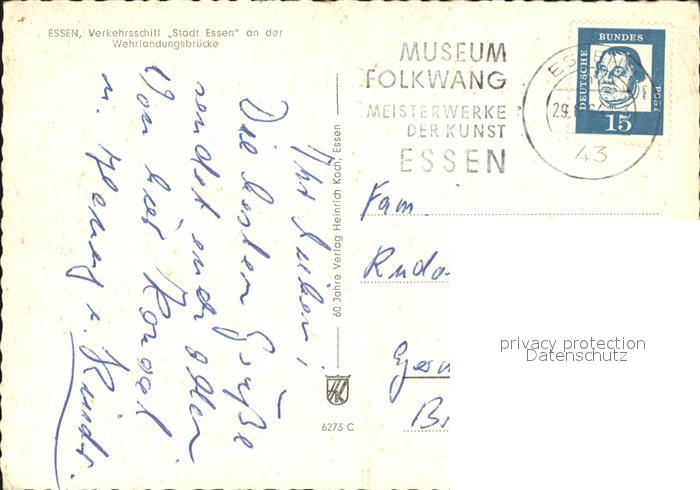 ESSEN, Verkehrsschiff „Stadt Essen" an der
Wehrlandungsbrücke
Ihr Lieben,
Die besten Grüße
sendet euch allen
von hier
u. Kinder.
60 Jahre Verlag Heinrich Koch, Essen
6273 C
MUSEUM
FOLKWANG
MEISTERWERKE
DER KUNST
ESSEN
ESSEN
29.
43
DEUTSCHE
BUNDES
POST
15
Fam.
privacy protection
Datenschutz